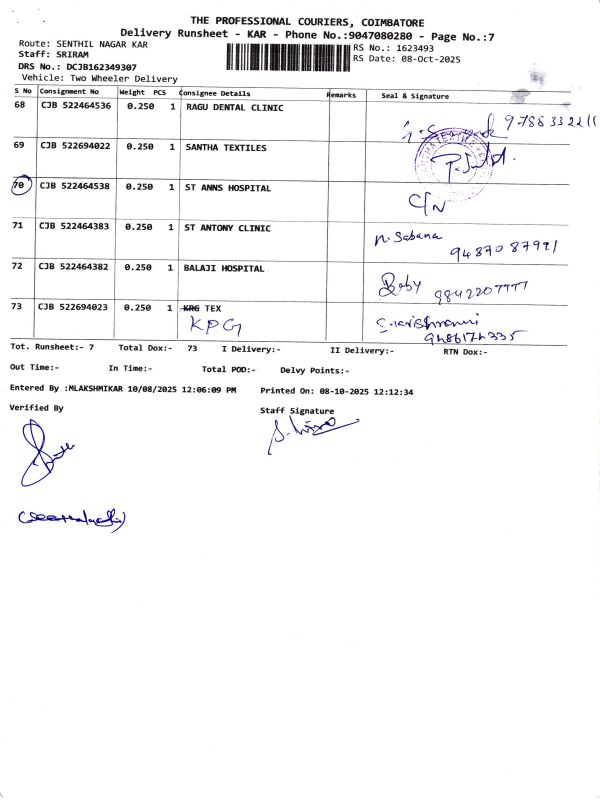 THE PROFESSIONAL COURIERS, COIMBATORE
Delivery Runsheet - KAR - Phone No.:9047080280 - Page No.:7
Route: SENTHIL NAGAR KAR
RS No.: 1623493
Staff: SRIRAM
RS Date: 08-Oct-2025
DRS No.: DCJB162349307
Vehicle: Two Wheeler Delivery
S No Consignment No Weight PCS Consignee Details Remarks Seal & Signature
68 CJB 522464536 0.250 1 RAGU DENTAL CLINIC
9788332211
69 CJB 522694022 0.250 1 SANTHA TEXTILES
70 CJB 522464538 0.250 1 ST ANNS HOSPITAL
C/N
71 CJB 522464383 0.250 1 ST ANTONY CLINIC
n. Sabana
9487087991
72 CJB 522464382 0.250 1 BALAJI HOSPITAL
Baby 9842207777
73 CJB 522694023 0.250 1 KRG TEX
KPG
9486174335
Tot. Runsheet:- 7 Total Dox:- 73 I Delivery:- II Delivery:- RTN Dox:-
Out Time:- In Time:- Total POD:- Delvy Points:-
Entered By :MLAKSHMIKAR 10/08/2025 12:06:09 PM Printed On: 08-10-2025 12:12:34
Verified By
Staff Signature